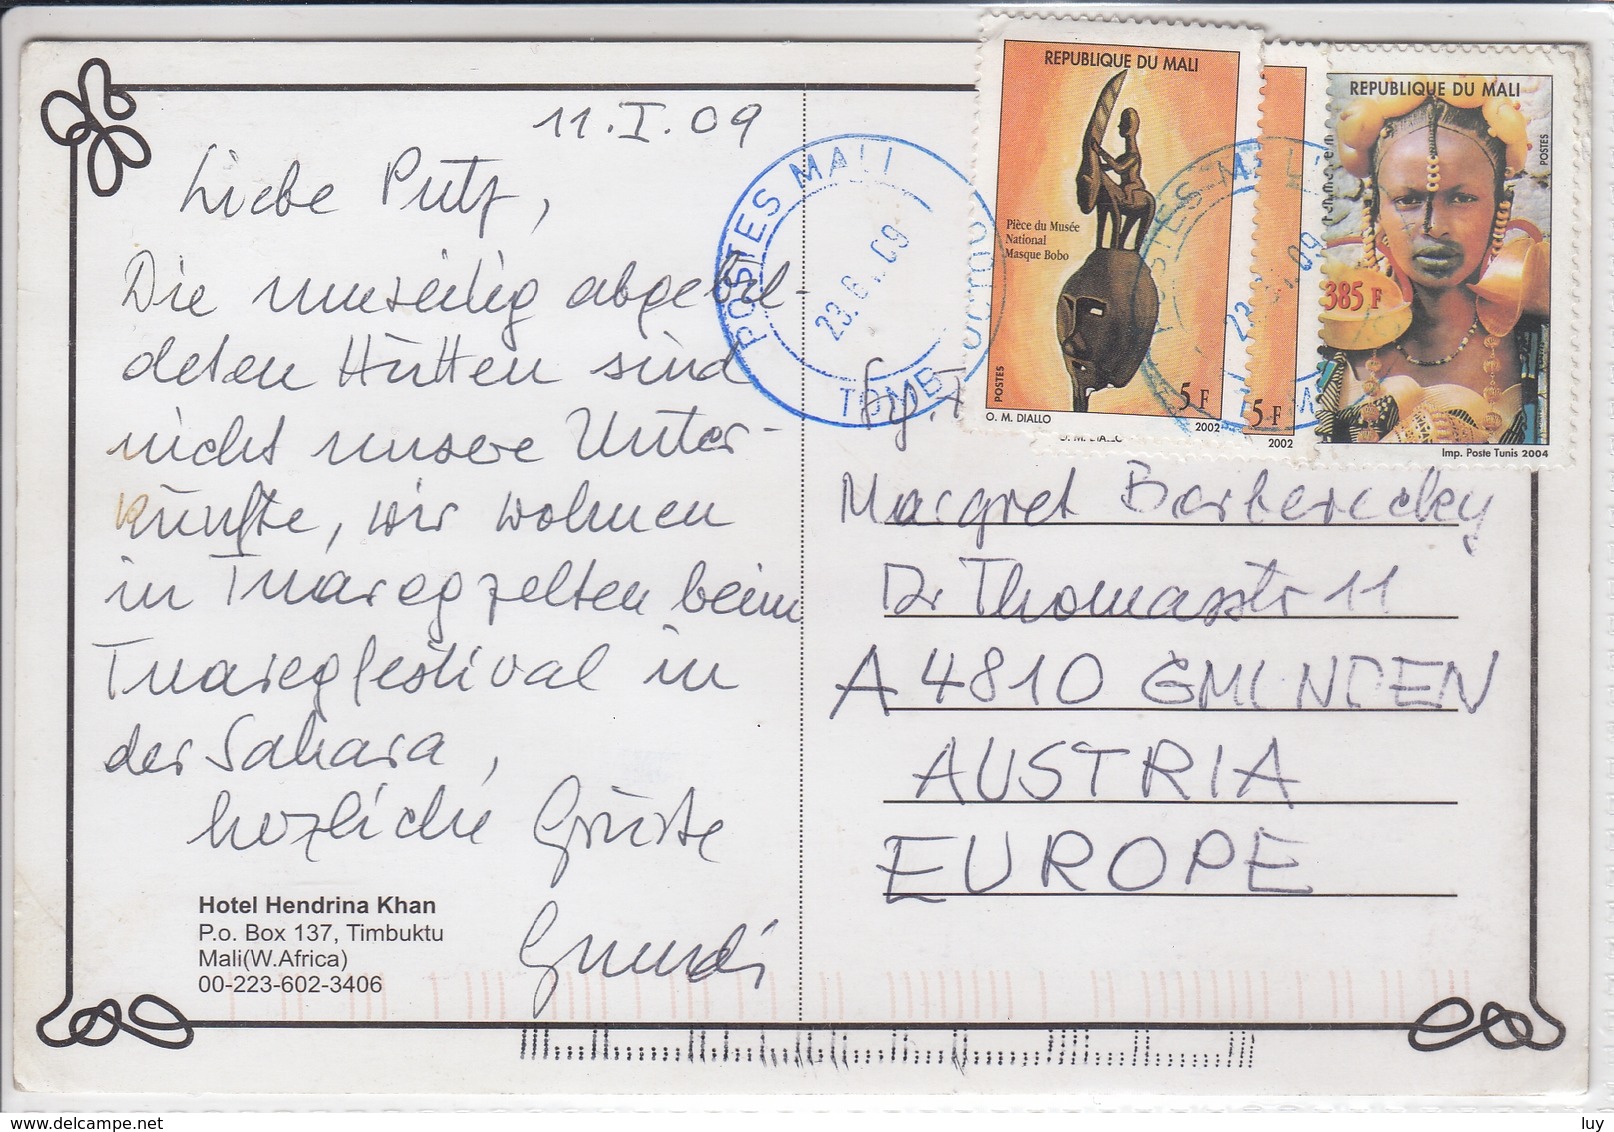 11.I.09
Liebe Putz,
Die rückseitig abgebil-
deten Hütten sind
nicht unsere Unter-
künfte, wir wohnen
in Tuaregzelten beim
Tuaregfestival in
der Sahara,
herzliche Grüsse
Gundi
Hotel Hendrina Khan
P.o. Box 137, Timbuktu
Mali(W.Africa)
00-223-602-3406
POSTES MALI
TOMB
REPUBLIQUE DU MALI
Pièce du Musée
National
Masque Bobo
POSTES
5 F
O. M. DIALLO
2002
5 F
O. M. DIALLO
2002
REPUBLIQUE DU MALI
POSTES
385 F
Imp. Poste Tunis 2004
Margret
Dr Thomasstr 11
A 4810 GMUNDEN
AUSTRIA
EUROPE
www.delcampe.net
luy